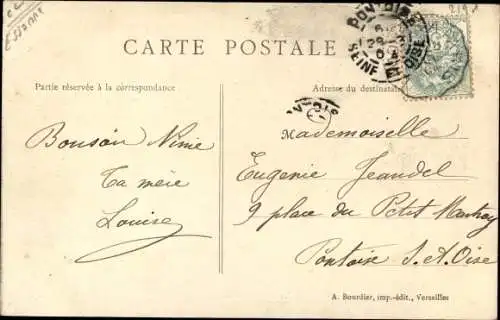 ESSONNE
CARTE POSTALE
PONTOISE
SEINE ET OISE
Partie réservée à la correspondance
Adresse du destinataire
Bonsoir Ninie
Ta mère
Louise
Mademoiselle
Eugenie Jeandel
9 place du Petit Martroy
Pontoise S. et Oise
A. Bourdier, imp.-édit., Versailles